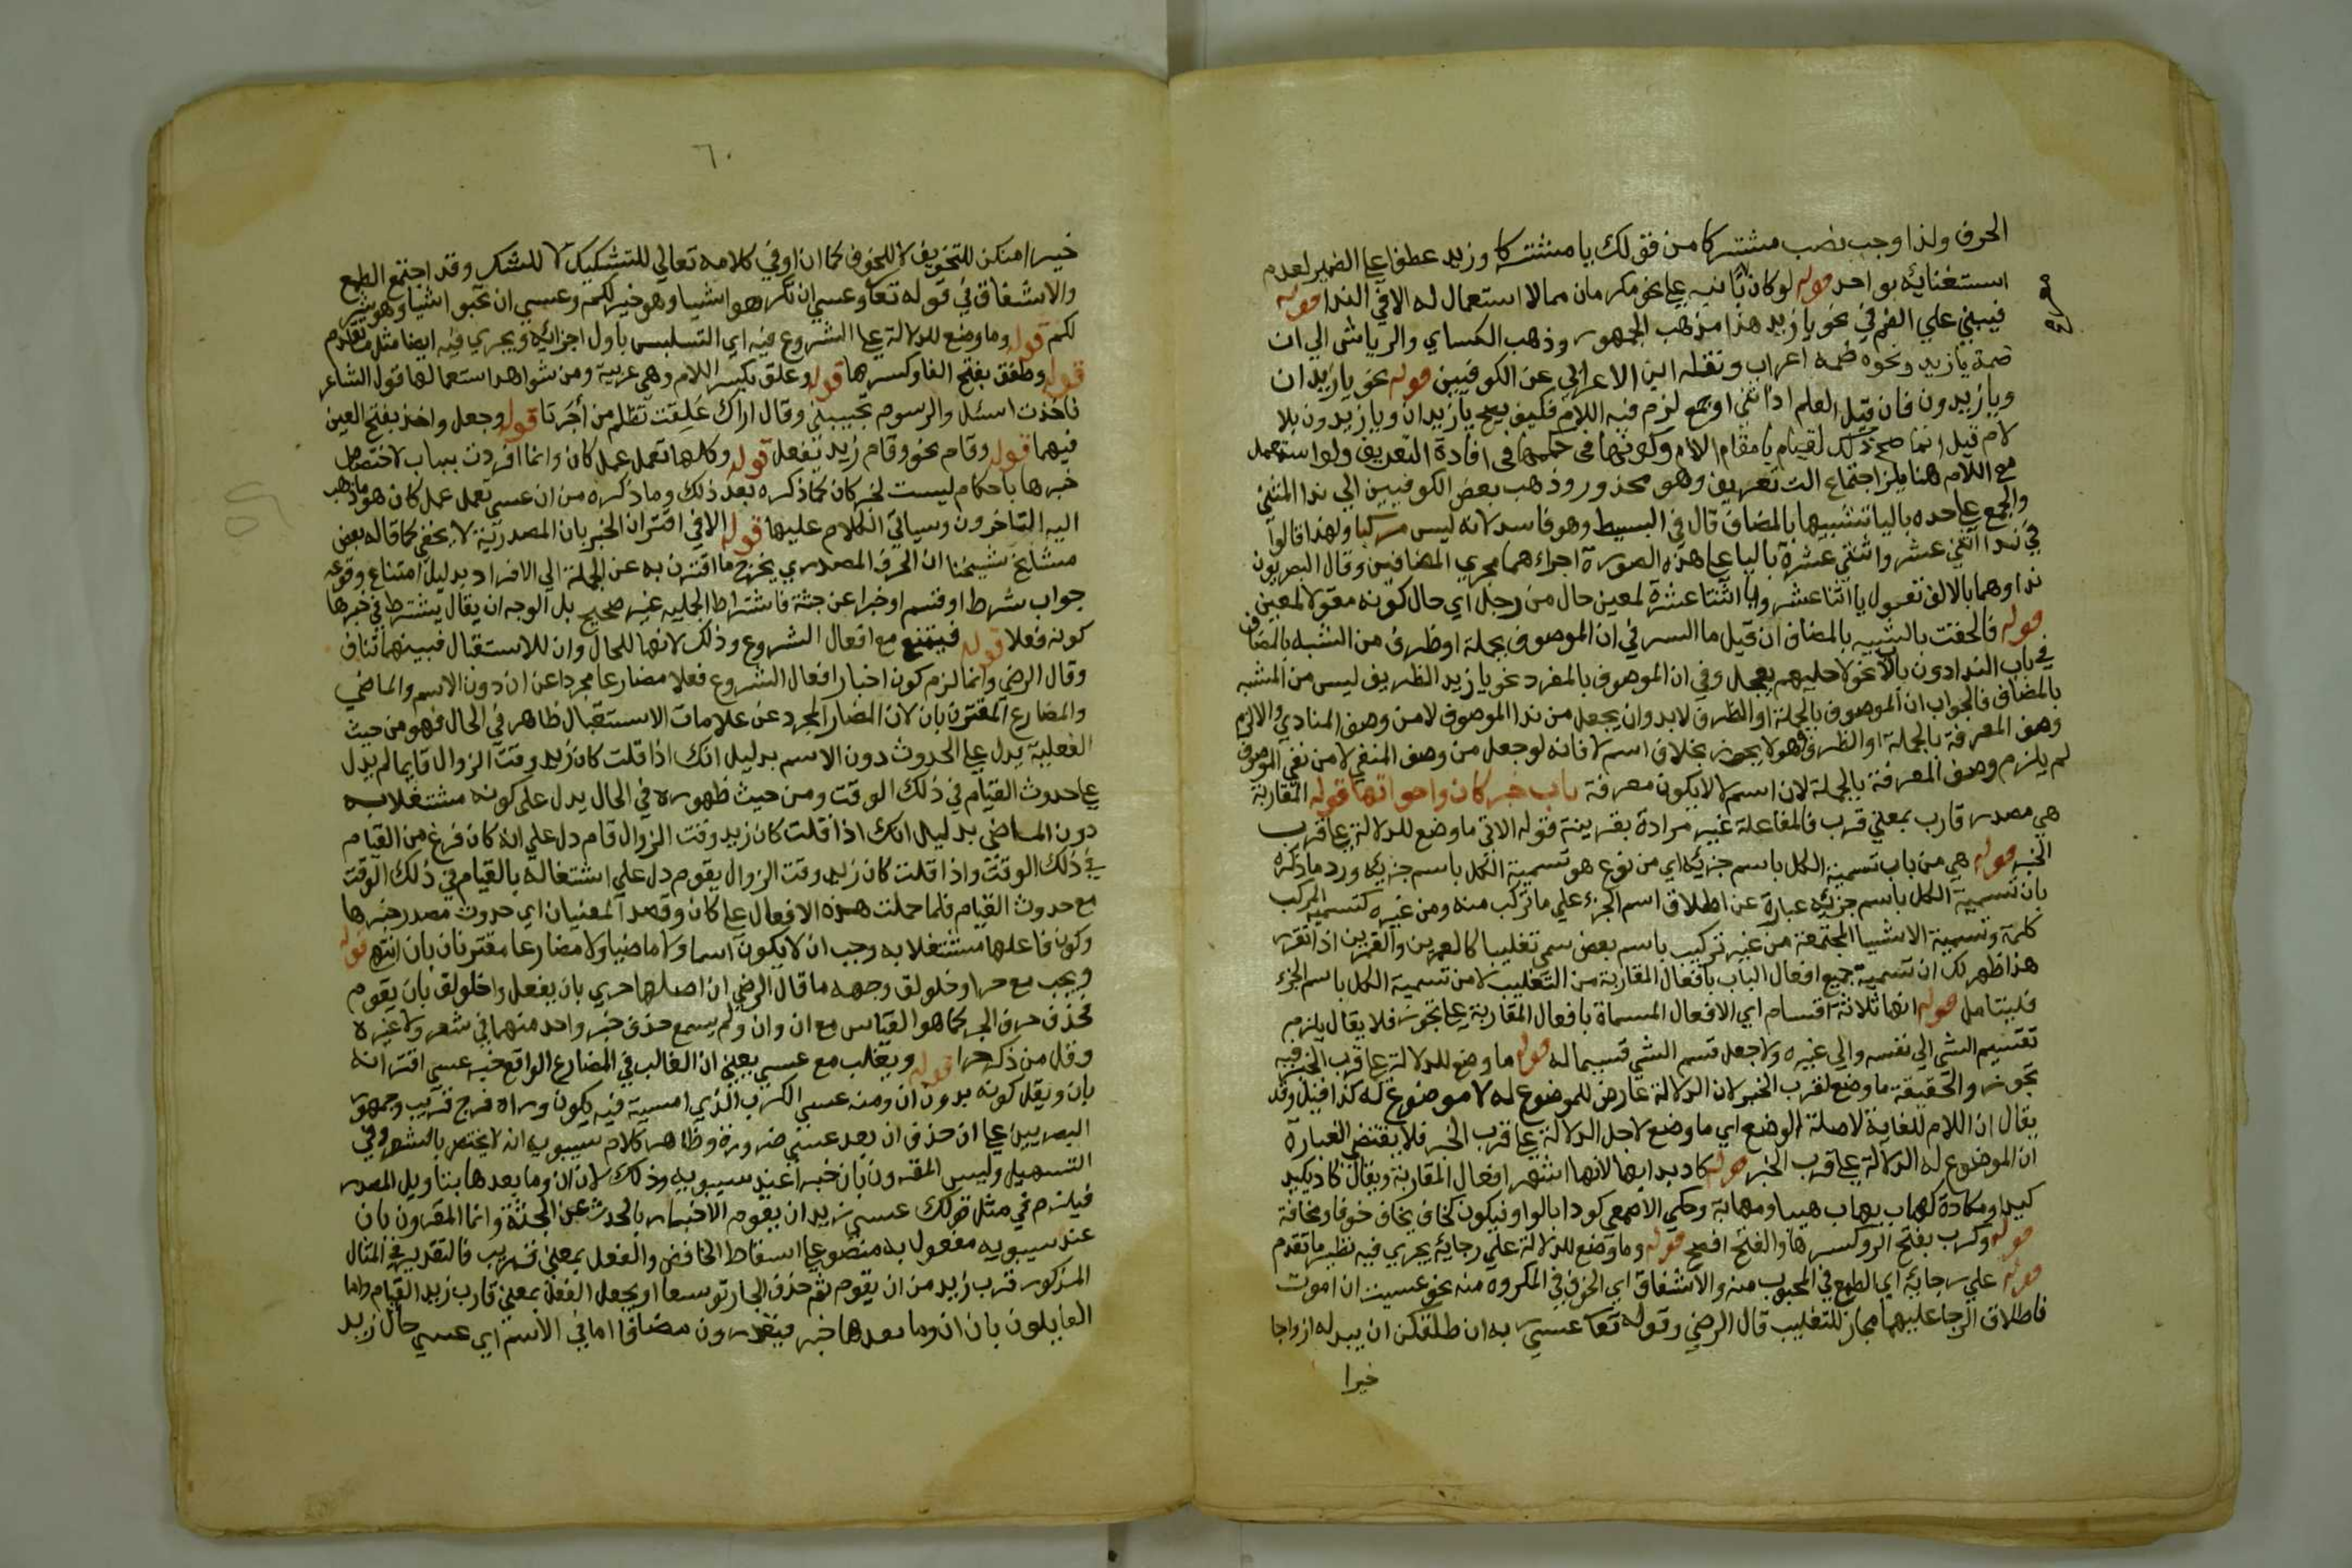 الحرف ولذا وجب نصب مشتركا من قولك يا مشتركا وزيد عطفا على الضمير لعدم
استغنائه بواحد قوله لو كان ثانيه على نحو مكرمان مما لا استعمال له الا في الندا قوله
فيبنى علي الضم في نحو يا زيد هذا مذهب الجمهور وذهب الكساي والرياشى الي ان
ضمة يا زيد ونحوه ضمه اعراب ونقله ابن الاعرابي عن الكوفيين قوله نحو يا زيدان
ويا زيدون فان قيل العلم اذا ثني او جمع لزم فيه اللام فكيف يصح يا زيدان ويا زيدون بلا
لام قيل انما صح ذلك لقيام يا مقام اللام وكونها في حكمها في افادة التعريف ولو استعمل
مع اللام هنا يلزم اجتماع التي تعريف وهو محذور وذهب بعض الكوفيين الي ندا المثنى
والجمع على حده باليا تشبيها بالمضاف قال في البسيط وهو فاسد لانه ليس مركبا ولهذا قالوا
في ندا اثني عشر واثنتي عشرة باليا على هذه الصورة اجراءهما مجري المضافين وقال البصريون
نداوهما بالالف نقول يا اثنا عشر ويا اثنتا عشرة لمعين حال من رجل اي حال كونه مقولا لمعين
قوله فالحقت بالشبيه بالمضاف ان قيل ما السر في ان الموصوف بجملة او ظرف من الشبه بالمضاف
في باب الندا دون باب لا نحو لا حليم يعجل وفي ان الموصوف بالمفرد نحو يا زيد الظريف ليس من المشبه
بالمضاف فالجواب ان الموصوف بالجملة او الظرف لا بد وان يجعل من ندا الموصوف لا من وصف المنادي والا لزم
وصف المعرفة بالجملة او الظرف وهو لا يجوز بخلاف اسم لا فانه لو جعل من وصف المنفي لا من نفي الموصوف
لم يلزم وصف المعرفة بالجملة لان اسم لا لا يكون معرفة باب خبر كان واخواتها قوله المقاربة
هي مصدر قارب بمعني قرب فالمفاعلة غير مرادة بقرينة قوله الاتي ما وضع للدلالة على قرب
الخبر قوله هي من باب تسمية الكل باسم جزئه اي من نوع هو تسمية الكل باسم جزئه ورد ما ذكره
بان تسمية الكل باسم جزئه عبارة عن اطلاق اسم الجزء علي ما تركب منه ومن غيره كتسمية المركب
كلمة وتسمية الاشيا المجتمعة من غير تركيب باسم بعض سمي تغليبا كالعمرين والقمرين اذا تقرر
هذا ظهر لك ان تسمية جميع افعال الباب بافعال المقاربة من التغليب لا من تسمية الكل باسم الجزء
فليتامل قوله انها ثلاثة اقسام اي الافعال المسماة بافعال المقاربة على تجوز فلا يقال يلزم
تقسيم الشي الي نفسه والي غيره ولا جعل قسم الشي قسيما له قوله ما وضع للدلالة على قرب الخبر فيه
تجوز والحقيقة ما وضع لقرب الخبر لان الدلالة عارض للموضوع له لا موضوع له كذا قيل وقد
يقال ان اللام للغاية لا صلة الوضع اي ما وضع لاجل الدلالة على قرب الخبر فلا يقتضي العبارة
ان الموضوع له الدلالة على قرب الخبر قوله كاد بدا بها لانها اشهر افعال المقاربة ويقال كاد يكيد
كيدا ومكادة كهاب يهاب هيبا ومهابة وحكي الاصمعي كودا بالواو فيكون كخاف يخاف خوفا ومخافة
قوله وكرب بفتح الرا وكسرها والفتح افصح قوله وما وضع للدلالة علي رجائه يجري فيه نظير ما تقدم
قوله علي رجائه اي الطمع في المحبوب منه والاشفاق اي الخوف في المكروه منه نحو عسيت ان اموت
فاطلاق الرجا عليهما مجاز للتغليب قال الرضي وقوله تعا عسي ربه ان طلقكن ان يبدله ازواجا
خيرا
٦٠
خيرا منكن للتخويف لا للخوف كما ان او في كلامه تعالي للتشكيك لا للشك وقد اجتمع الطمع
والاشفاق في قوله تعا وعسي ان تكرهوا شيا وهو خير لكم وعسي ان تحبوا شيا وهو شر
لكم قوله وما وضع للدلالة على الشروع فيه اي التلبس باول اجزائه ويجري فيه ايضا مثل ما تقدم
قوله وطفق بفتح الفا وكسرها قوله وعلق بكسر اللام وهي غريبة ومن شواهد استعمالها قول الشاعر
فاخذت اسئل والرسوم تجيبني وقال اراك علقت تظلم من أجرنا قوله وجعل واخذ بفتح العين
فيهما قوله وقام نحو وقام زيد ينفعل قوله وكلها تعمل عمل كان وانما افردت بباب لاختصاص
خبرها باحكام ليست لخبر كان كما ذكره بعد ذلك وما ذكره من ان عسي تعمل عمل كان هو ما ذهب
اليه المتاخرون وسياتي الكلام عليها قوله الا في اقتران الخبر بان المصدرية لا يخفى كما قاله بعض
مشايخ شيخنا ان الحرف المصدري يخرج ما اقترن به عن الجملة الي الافراد بدليل امتناع وقوعه
جواب شرط او قسم او خبرا عن جثة فاشتراط الجمليه غير صحيح بل الوجه ان يقال يشترط في خبرها
كونه فعلا قوله فيمتنع مع افعال الشروع وذلك لانها للحال وان للاستقبال فبينهما تناف
وقال الرضي وانما لزم كون اخبار افعال الشروع فعلا مضارعا مجردا عن ان دون الاسم والماضي
والمضارع المقترن بان لان المضارع المجرد عن علامات الاستقبال ظاهر في الحال فهو من حيث
الفعلية يدل على الحدوث دون الاسم بدليل انك اذا قلت كان زيد وقت الزوال قايما لم يدل
على حدوث القيام في ذلك الوقت ومن حيث ظهوره في الحال يدل على كونه مشتغلا به
دون الماضي بدليل انك اذا قلت كان زيد وقت الزوال قام دل علي انه كان فرغ من القيام
في ذلك الوقت واذا قلت كان زيد وقت الزوال يقوم دل علي اشتغاله بالقيام في ذلك الوقت
مع حدوث القيام فلما حملت هذه الافعال على كان وقصد المعنيان اي حدوث مصدر خبرها
وكون فاعلها مشتغلا به وجب ان لا يكون اسما ولا ماضيا ولا مضارعا مقترنا بان انتهى قوله
ويجب مع حرا وخلولق وجهه ما قال الرضي ان اصلها حري بان يفعل واخلولق بان يقوم
فحذف حرف الجر كما هو القياس مع ان وان ولم يسمع حذف خبر واحد منهما في شعر ولا غيره
وقل من ذكر حرا قوله ويغلب مع عسي يعني ان الغالب في المضارع الواقع خبر عسي اقترانه
بان ويقل كونه بدون ان ومنه عسي الكرب الذي امسيت فيه يكون وراه فرج قريب وجمهور
البصريين على ان حذف ان بعد عسي ضرورة وظاهر كلام سيبويه انه لا يختص بالشعر وفي
التسهيل وليس المقرون بان خبرا عند سيبويه وذلك لان ان وما بعدها بتاويل المصدر
فيلزم في مثل قولك عسي زيد ان يقوم الاخبار بالحدث عن الجثة وانما المقرون بان
عند سيبويه مفعول به منصوب على اسقاط الخافض والفعل بمعني قرب فالتقدير في المثال
المذكور قرب زيد من ان يقوم ثم حذف الجار توسعا او يجعل الفعل بمعني قارب زيد القيام واما
القايلون بان ان وما بعدها خبر فيقدرون مضافا اما في الاسم اي عسي حال زيد